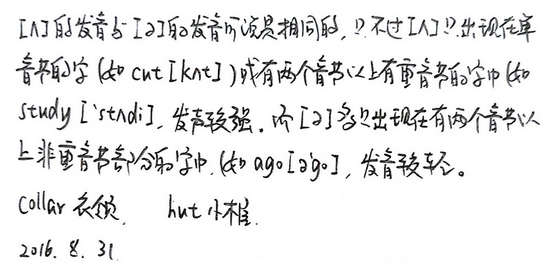 [ʌ]的发音与[ə]的发音可说是相同的,只不过[ʌ]只出现在单
音节的字(如cut[kʌt])或有两个音节以上有重音节的字中(如
study['stʌdi],发声较强。而[ə]多只出现在有两个音节以
上非重音节部分的字中,(如ago[ə'go],发音较轻。
collar 衣领, hut 小椎.
2016. 8. 31